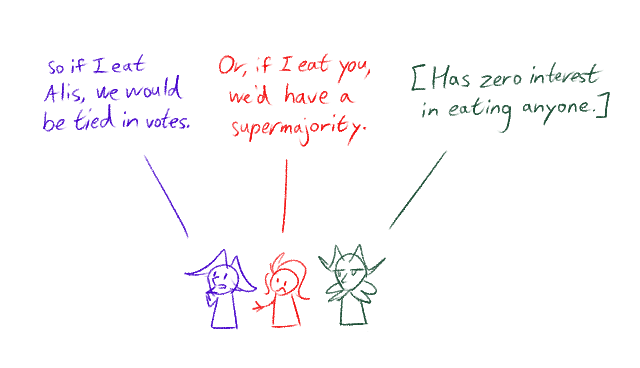 So if I eat
Alis, we would
be tied in votes.
Or, if I eat you,
we'd have a
supermajority.
[Has zero interest
in eating anyone.]